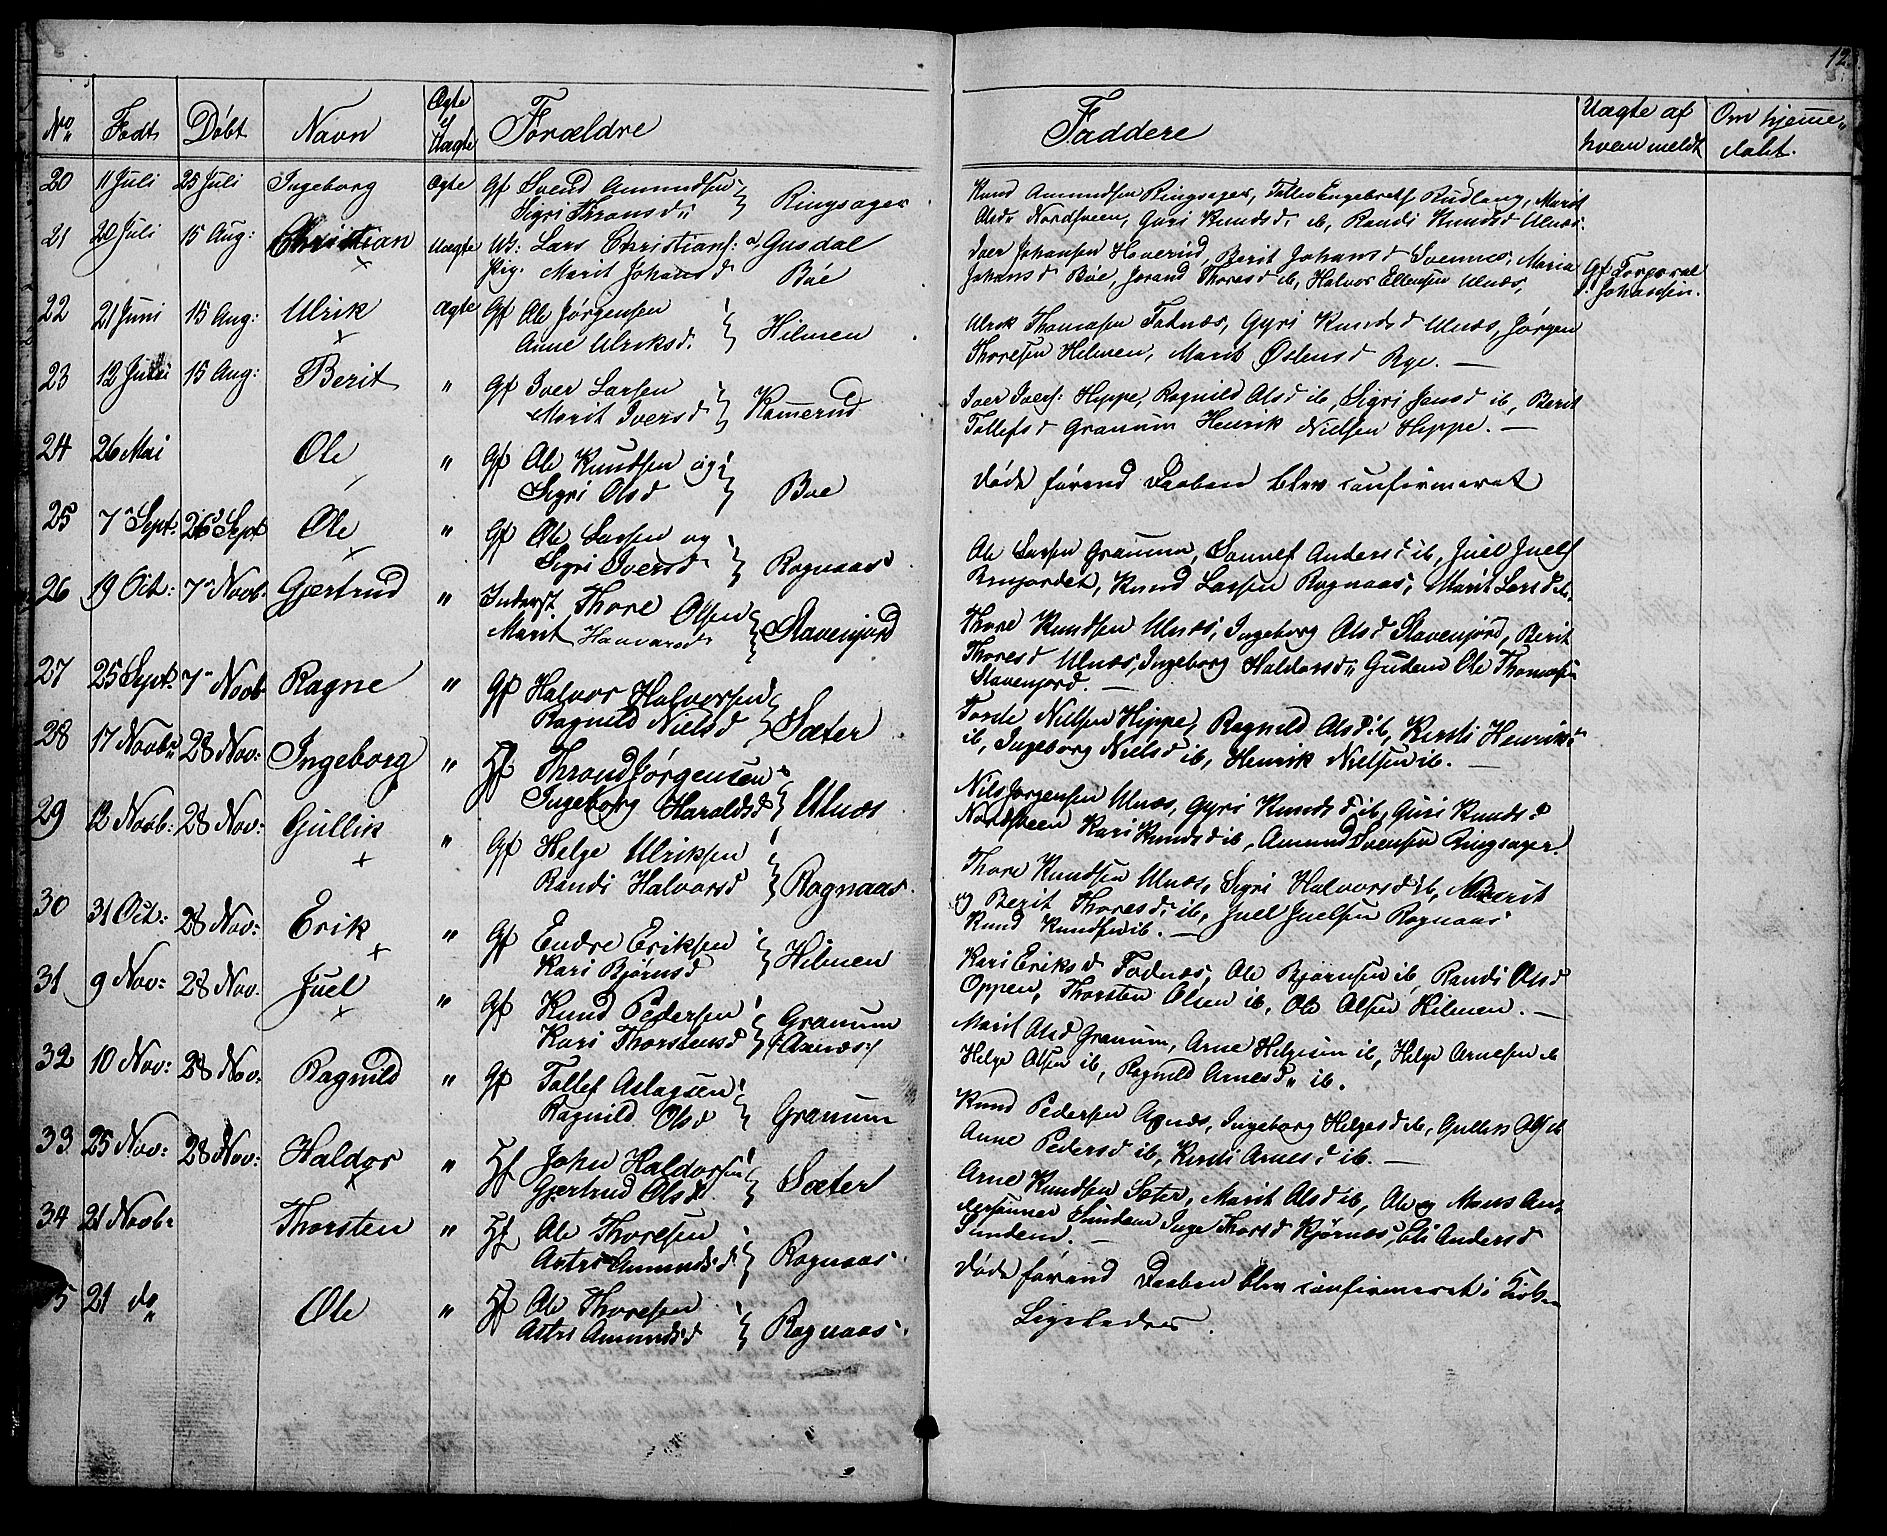 12.
No. Födt Döbt Navn Ægte el Uægte Forældre Faddere Uægte af hvem meldt Om hjemedöbt.
20 11 Juli 25 Juli Ingeborg Ægte Gf Svend Amundsen
Sigri Thronsd: Ringsager
Knud Amundsen Ringsager, Tollev Engebrets Rudlang, Marit
Olsd Nordsveen, Guri Knudsd ib, Randi Knudsd Ulnæs.
21 20 Juli 15 Aug: Christian Uægte Uk: Lars Christians: Gusdal
Pig. Marit Johansd Böe
Iver Johansen Haverud, Berit Johansd Svennes, Maria
Johansd Böe, Jorand Thoresd ib, Halvor Ellensen Ulnæs,
Gf Corporal
Johansen.
22 21 Juni 15 Aug: Ulrik Ægte Gf Ole Jörgensen
Anne Ulriksd. Hilmen
Ulrik Thomasen Fodnæs, Gyri Knudsd Ulnæs, Jörgen
Thoresen Hilmen, Marit Östensd Rye. —
23 12 Juli 15 Aug: Berit " Gf Iver Larsen
Marit Iversd Kamerud
Iver Ivers: Hippe, Ragnild Olsd ib, Sigri Jansd ib, Berit
Tollefsd Granum Henrik Nielsen Hippe. —
24 26 Mai Ole " Gf Ole Knudsen og
Sigri Olsd Böe
döde förend Daaben blev confirmeret
25 7 Sept: 26 Sept Ole " Gf Ole Larsen og
Sigri Iversd Rognaas
Ole Larsen Granum, Sonnef Andersd ib, Juel Juels
Brujordet, Knud Larsen Rognaas, Marit Larsd ib.
26 19 Oct: 7 Novb. Gjertrud " Inderst Thore Olsen
Marit Haavarsd Stavenjord
Thore Knudsen Ulnæs, Ingeborg Olsd Stavenjord, Berit
Thoresd Ulnæs, Ingeborg Haldorsd Gudem Ole Thomasen
Stavenjord. —
27 25 Sept. 7 Novb Ragne " Gf Halvor Halvorsen
Ragnild Nielsd Sæter
Torste Nielsen Hippe, Ragnild Olsd ib, Kirsti Henriks
ib, Ingeborg Nielsd ib, Henrik Nielsen ib. —
28 17 Novb 28 Nov: Ingeborg " Hf Thrond Jörgensen
Ingeborg Haraldsd Ulnæs
Nils Jörgensen Ulnæs, Gyri Knudsd ib, Guri Knudsd
Nordsveen Kari Knudsd ib, Amund Svensen Ringsager.
29 12 Novb: 28 Nov: Gullik " Gf Helge Ulriksen
Randi Halvorsd Rognaas.
Thore Knudsen Ulnæs, Sigri Halvorsd ib, Marit
og Berit Thoresd ib, Juel Juelsen Rognaas
Knud Knudsen ib. —
30 31 Oct: 28 Nov: Erik " Gf Endre Eriksen
Kari Björnsd Hilmen
Kari Eriksd Fodnæs, Ole Björnsen ib, Randi Olsd
Oppen, Thorsten Olsen ib, Ole Olsen Hilmen. —
31 9 Nov: 28 Nov. Juel " Gf Knud Pedersen Granum
Kari Thorstensd
Marit Olsd Granum, Arne Helgesen ib, Helge Arnesen ib
Helge Olsen ib, Ragnild Arnesd ib.
32 10 Nov: 28 Nov: Ragnild " Gf Tollef Aslagsen
Ragnild Olsd Granum
Knud Pedersen Agnæs, Ingeborg Helgesd ib, Gullik Ols ib
Anne Pedersd ib, Kirsti Arnesd ib. —
33 25 Nov: 28 Nov: Haldor " Hf John Haldorsen
Gjertrud Olsd Sæter
Arne Knudsen Sæter, Marit Olsd ib, Ole og Mons An-
dersönner Sundem Inge Thorsd Kjörnæs, Eli Andersd
Sundem. —
34 21 Novb. Thorsten " Hf Ole Thoresen
Astri Amundsd Rognaas.
döde förend Daaben blev confirmeret i Kirken
35 21 do Ole " Hf Ole Thoresen
Astri Amundsd Rognaas.
Ligeledes.